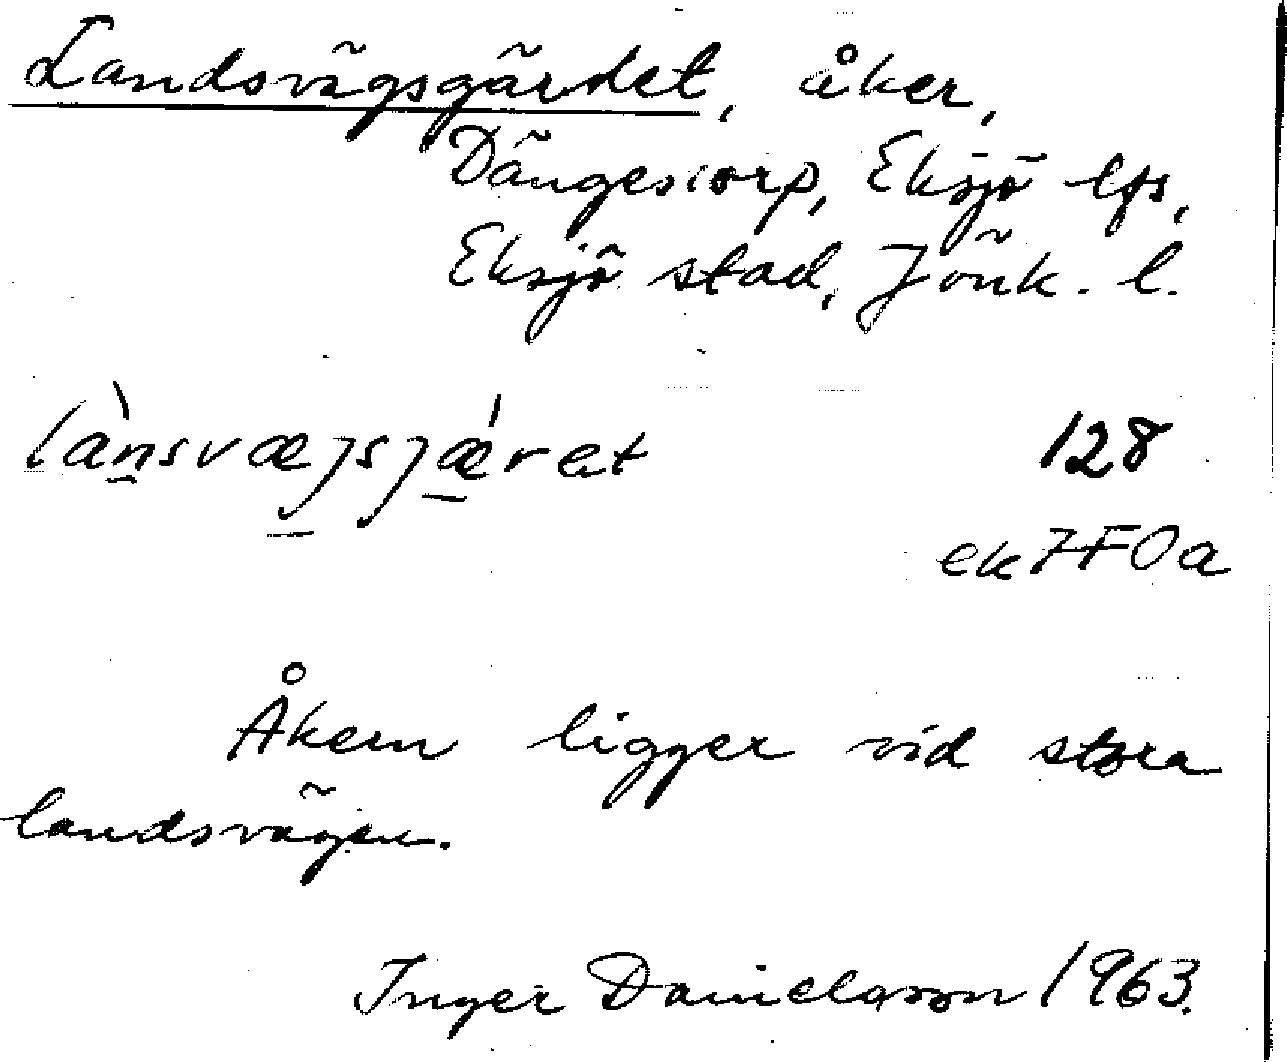 Landsvägsgärdet, åker,
Dängestorp, Eksjö lfs,
Eksjö stad, Jönk. l.
lànsvæjsjǽret 128
ek 7F0a
Åkern ligger vid stora
landsvägen.
Inger Danielsson 1963.